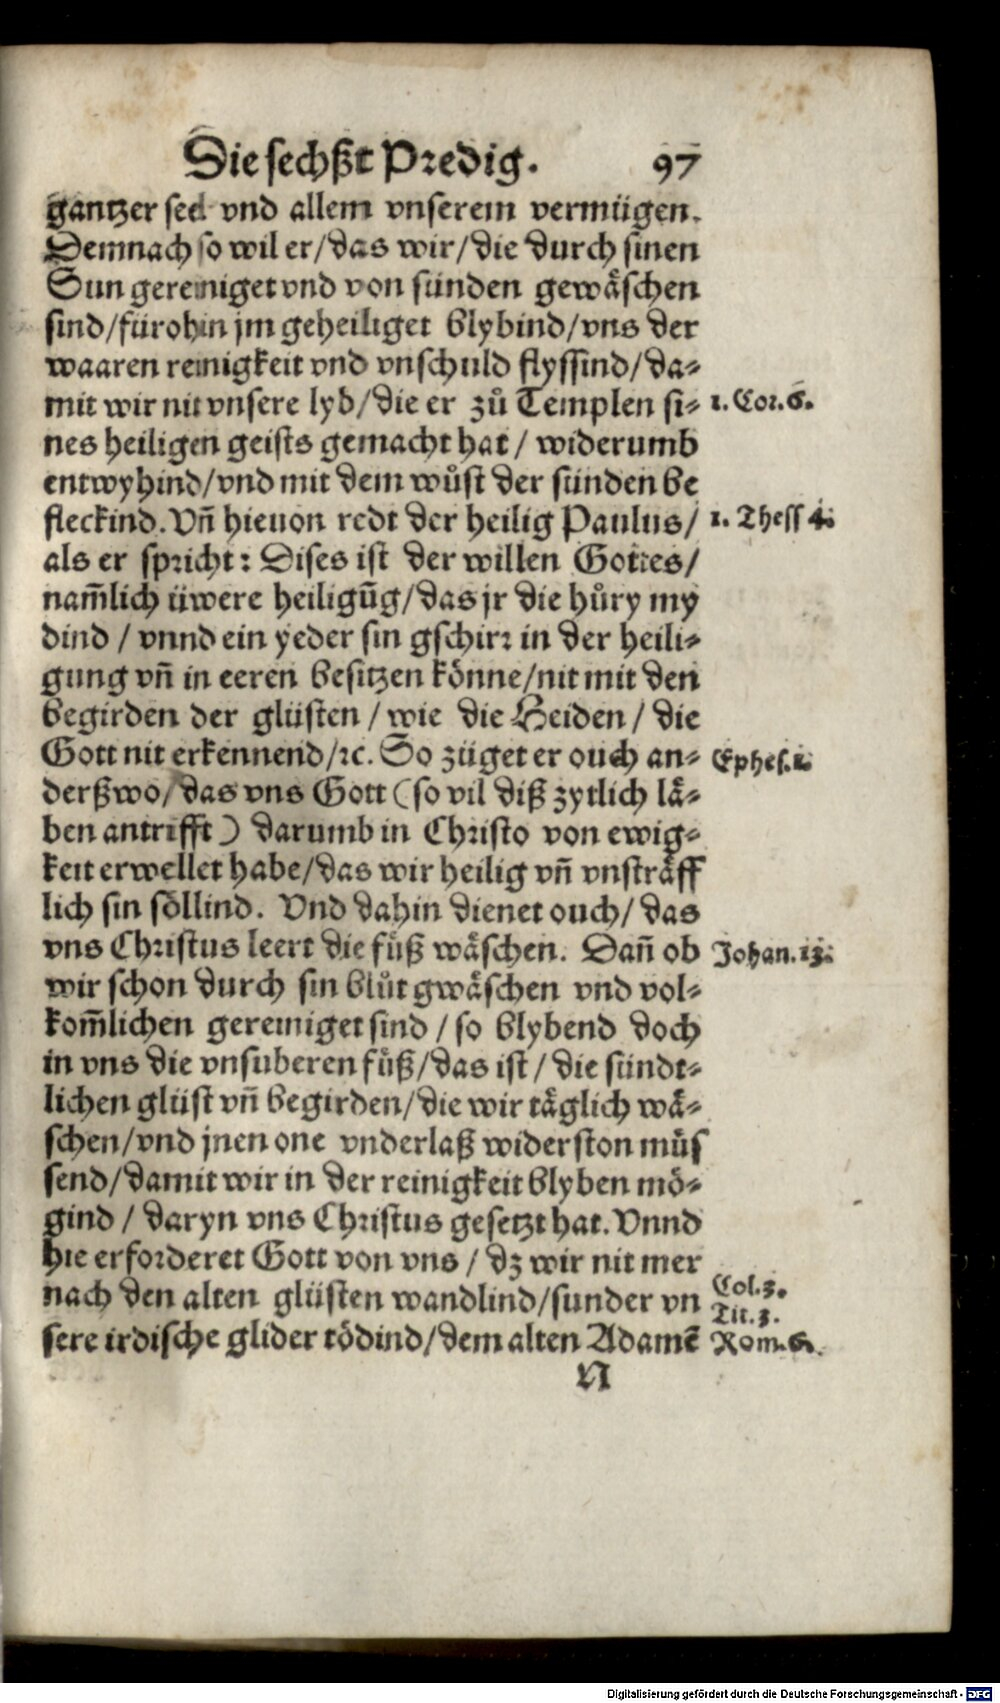 Die sechßt Predig. 97
gantzer seel vnd allem vnserem vermügen.
Demnach so wil er/das wir/die durch sinen
Sun gereiniget vnd von sünden gewäschen
sind/fürohin jm geheiliget blybind/vns der
waaren reinigkeit vnd vnschuld flyssind/da-
mit wir nit vnsere lyb/die er zů Templen si- 1. Cor. 6.
nes heiligen geists gemacht hat/ widerumb
entwyhind/vnd mit dem wůst der sünden be
fleckind. Vñ hieuon redt der heilig Paulus/ 1. Thess 4.
als er spricht: Dises ist der willen Gottes/
nam̃lich üwere heiligũg/das jr die hůry my
dind / vnnd ein yeder sin gschirr in der heili-
gung vñ in eeren besitzen könne/nit mit den
begirden der glüsten / wie die Heiden / die
Gott nit erkennend/ꝛc. So züget er ouch an- Ephes. 1.
derßwo/das vns Gott (so vil diß zytlich lä-
ben antrifft) darumb in Christo von ewig-
keit erwellet habe/das wir heilig vñ vnsträff
lich sin söllind. Vnd dahin dienet ouch/ das
vns Christus leert die füß wäschen. Dañ ob Johan. 13.
wir schon durch sin blůt gwäschen vnd vol-
kom̃lichen gereiniget sind / so blybend doch
in vns die vnsuberen füß/das ist / die sündt-
lichen glüst vñ begirden/die wir täglich wä-
schen/vnd jnen one vnderlaß widerston müs
send/damit wir in der reinigkeit blyben mö-
gind / daryn vns Christus gesetzt hat. Vnnd
hie erforderet Gott von vns / dz wir nit mer
nach den alten glüsten wandlind/sunder vn Col. 3.
Tit. 3.
sere irdische glider tödind/dem alten Adamẽ Rom. 6.
N
Digitalisierung gefördert durch die Deutsche Forschungsgemeinschaft - DFG